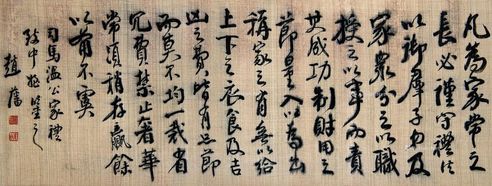 凡為家常之
長必謹守禮法
以御羣子弟及
家眾分之以職
授之以事而責
其成功制財用之
節量入以為出
稱家之有無以給
上下之衣食及吉
凶之費皆有品節
而莫不均一裁省
冗費禁止奢華
常須稍存贏餘
以備不虞
司馬溫公家禮
致中鑒之
趙藩